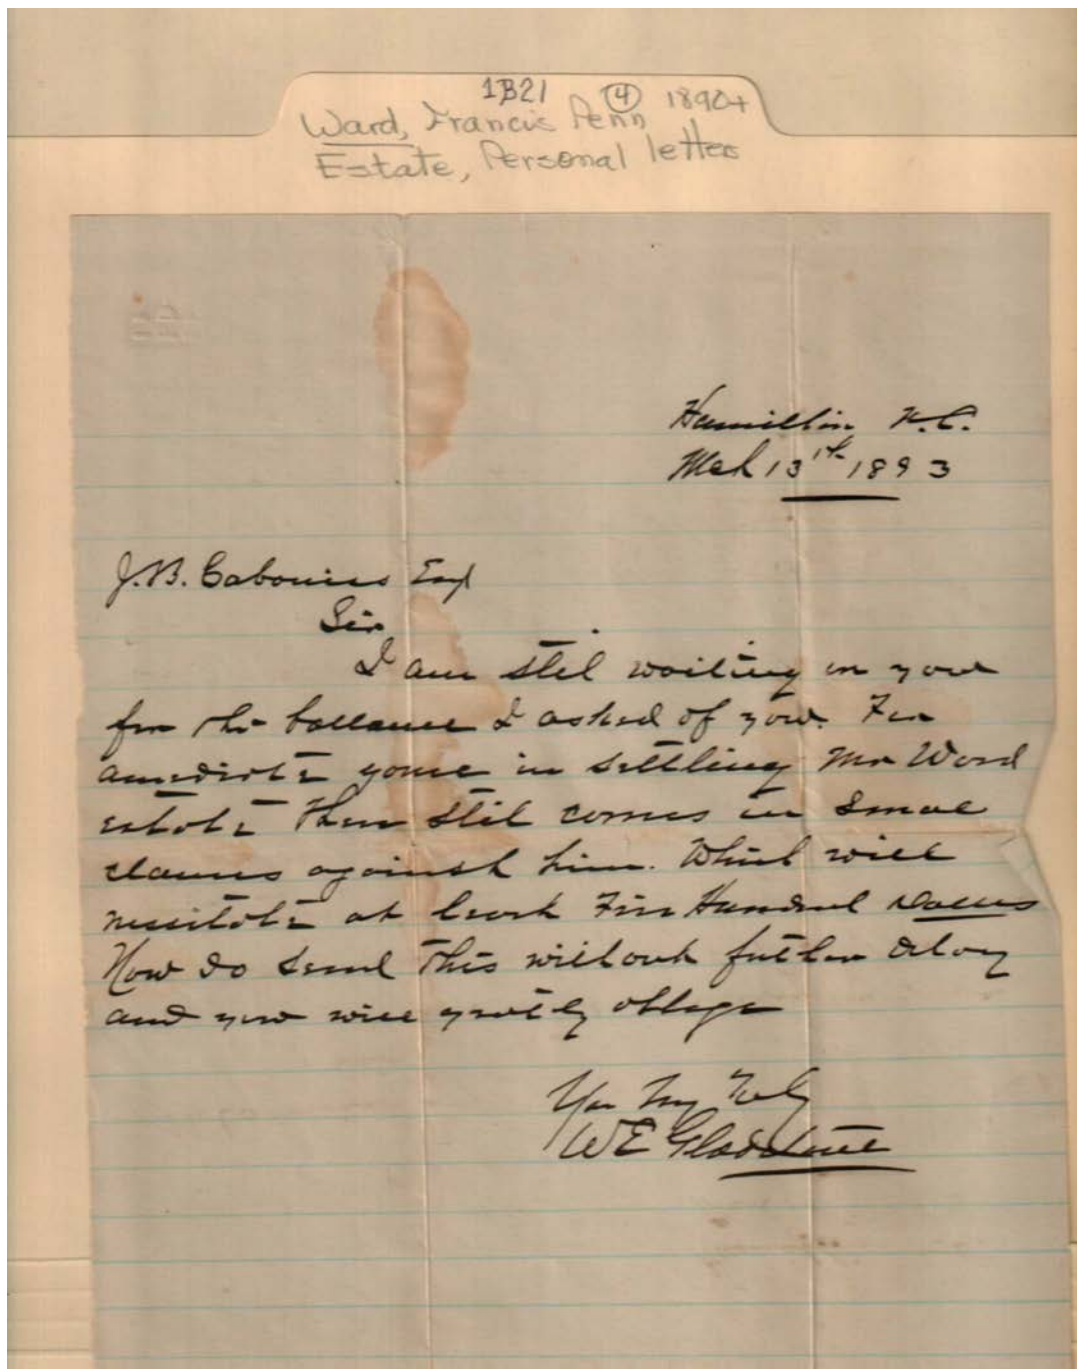 1B21 (4) 1890+
Ward, Francis Penn
Estate, Personal letters
Hamilton N.C.
Mch 13th 1893
J.B. Cabaniss Esq
Sir
I am stil waiting on you
for the ballance I asked of you. For
in settling Mr Ward
estate There stil comes in smal
claims against him. Which will
nessitate at least Five Hundred Dollars
Now do send this without futher delay
and you will gratly oblige
You Very Truly
WE Gladstone